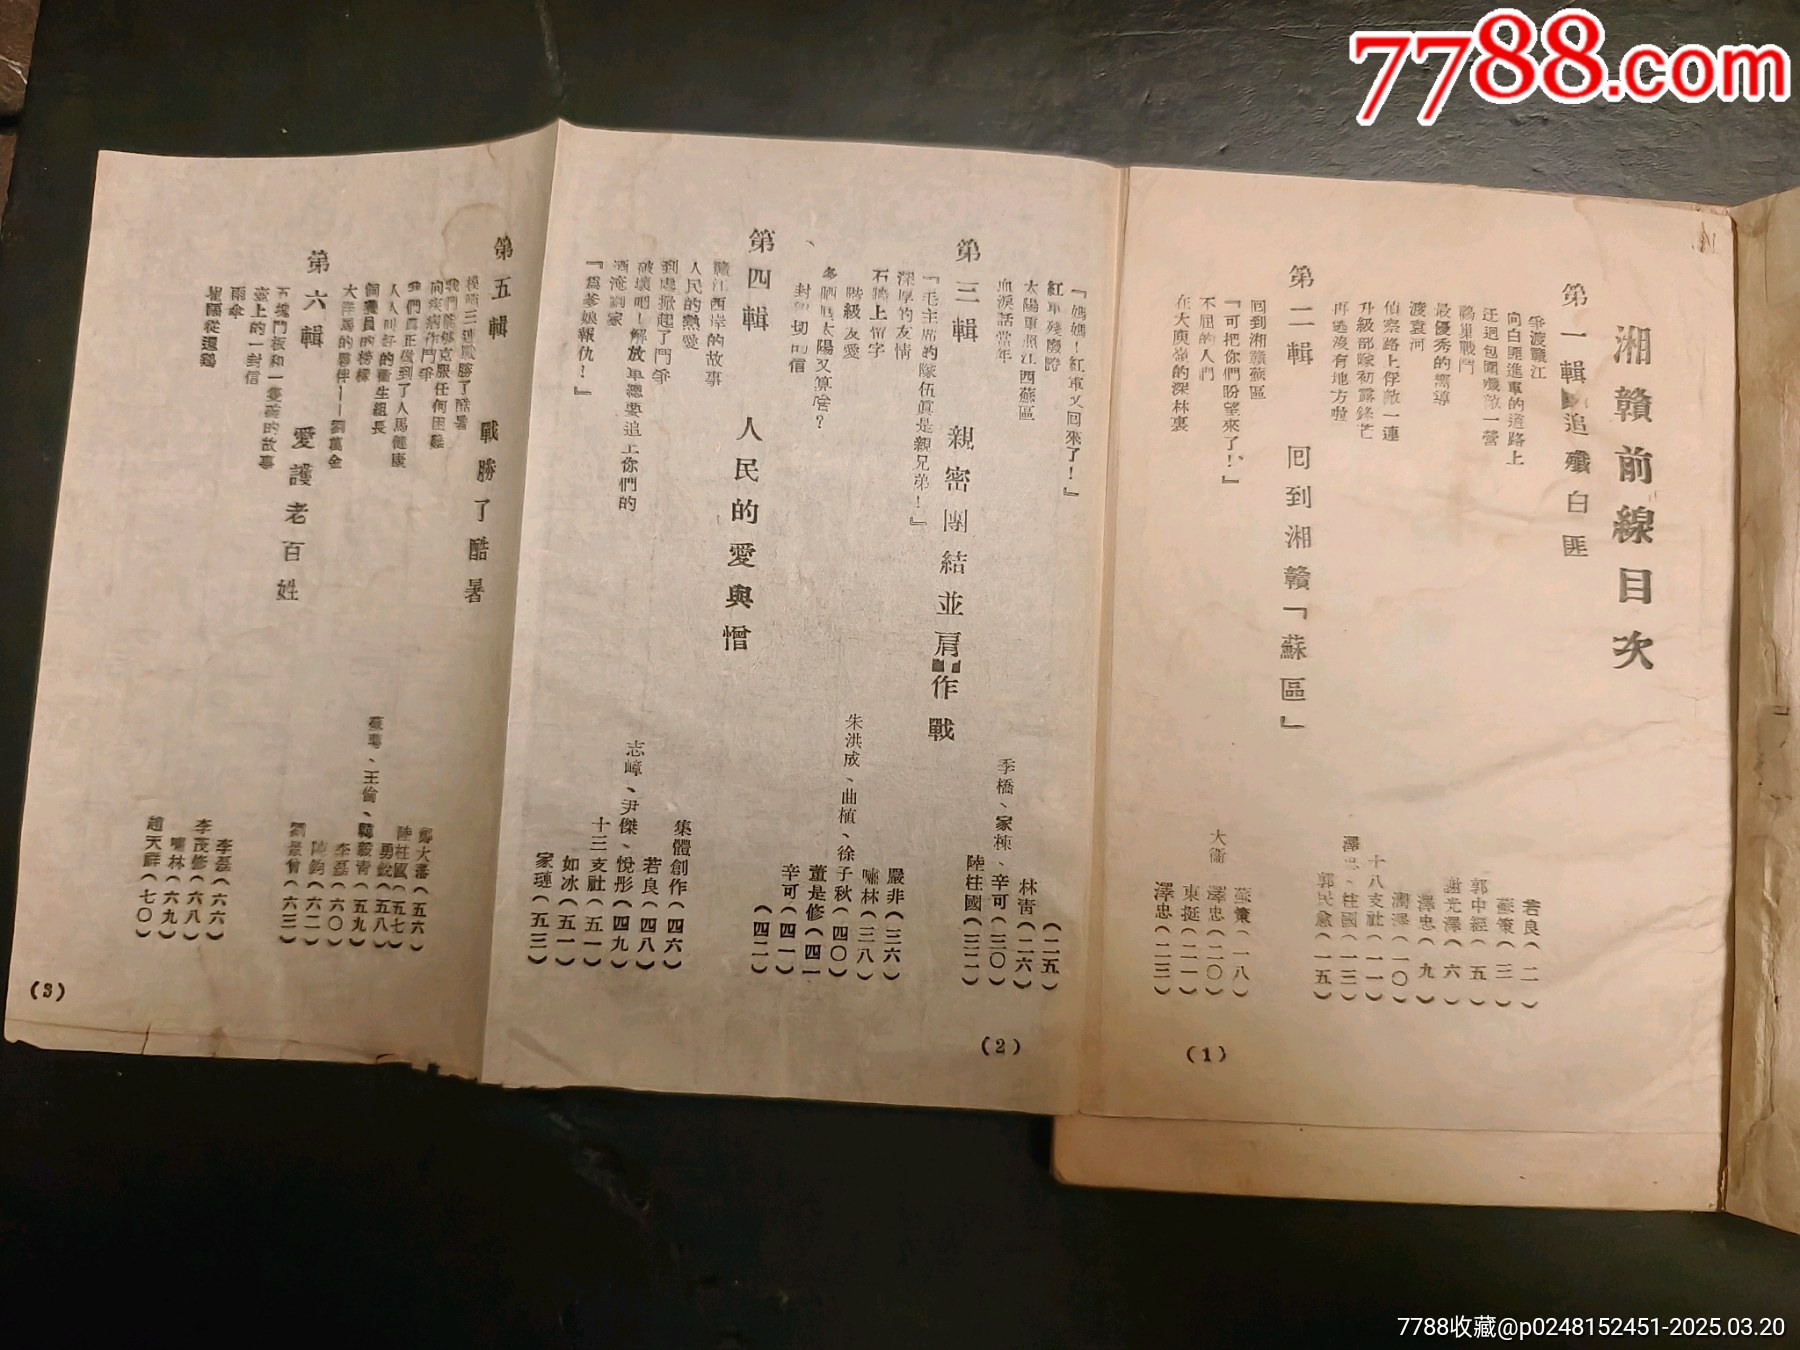 7788.com
湘贛前線目次
第一輯 追殲白匪
爭渡贛江
若良(二)
向白匪進軍的道路上
蘇策(三)
迂迴包圍殲敵一營
郭中經(五)
鷄巢戰鬥
謝光澤(六)
最優秀的嚮導
澤忠(九)
渡袁河
潤澤(一〇)
偵察路上俘敵一連
十八支社(一一)
升級部隊初露鋒芒
澤忠、柱國(一三)
再逃沒有地方啦
郭民愈(一五)
第二輯 回到湘贛「蘇區」
回到湘贛蘇區
蘇策(一八)
『可把你們盼望來了!』
大衞 澤忠(二〇)
不屈的人們
東挺(二一)
在大庾嶺的深林裏
澤忠(二三)
(1)
『媽媽!紅軍又回來了!』
(二五)
紅軍殘廢證
林青(二六)
太陽重照江西蘇區
季橋、家棟、辛可(三〇)
血淚話當年
陸柱國(三二)
第三輯 親密團結並肩作戰
『毛主席的隊伍眞是親兄弟!』
嚴非(三六)
深厚的友情
嘯林(三八)
石牆上留字
朱洪成、曲植、徐子秋(四〇)
階級友愛
董是修(四一
多晒晒太陽又算啥?
辛可(四一)
一封密切的信
(四二)
第四輯 人民的愛與憎
贛江西岸的故事
集體創作(四六)
人民的熱愛
若良(四八)
到處掀起了鬥爭
志嶂、尹傑、悅彤(四九)
破壞吧!解放軍總要追上你們的
十三支社(五一)
酒淹劉家
如冰(五一)
『爲爹娘報仇!』
家璉(五三)
(2)
第五輯 戰勝了酷暑
鄭大藩(五六)
我們能够克服任何困難
陸柱國(五七)
向疾病作鬥爭
勇銳(五八)
我們眞正做到了人馬健康
王倫、韓毅青(五九)
人人叫好的衞生組長
李磊(六〇)
個黨員的榜樣
陳鈞(六二)
大洋馬的夥伴——劉萬金
劉景曾(六三)
第六輯 愛護老百姓
五塊門板和一隻碗的故事
李磊(六六)
壺上的一封信
李茂修(六八)
雨傘
嘯林(六九)
趙天群(七〇)
(3)
7788收藏@p0248152451-2025.03.20